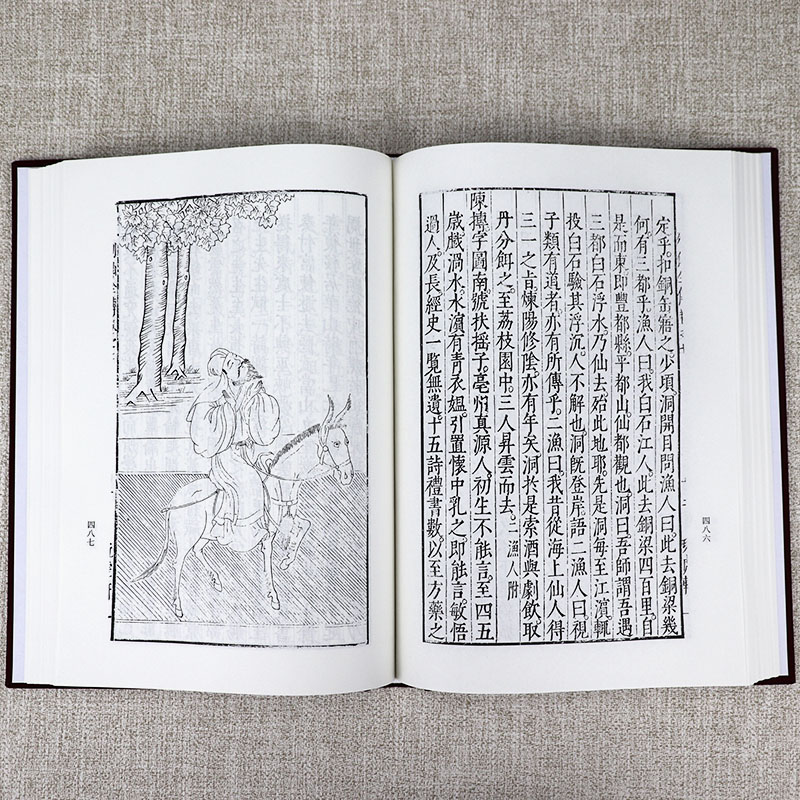 定乎。扣銅缶寤之。少頃。洞開目問漁人曰。此去銅梁幾
何。有三都乎。漁人曰。我白石江人。此去銅梁四百里。自
是而東。即豐都縣。平都山仙都觀也。洞曰。吾師謂吾遇
三都白石浮水。乃仙去。殆此地耶。先是洞每至江濵。輒
投白石。驗其浮沉。人不解也。洞旣登岸。語二漁人曰。視
子類有道者。亦有所傳乎。二漁曰。我昔從海上仙人得
三一之㫖。煉陽修陰。亦有年矣。洞於是索酒與劇飲。取
丹分餌之。至荔枝園中。三人昇雲而去。二漁人附
陳摶字圖南。號扶揺子。亳州真源人。初生不能言。至四五
歲。戲渦水。水濵有青衣媼。引置懷中乳之。即能言。敏悟
過人。及長經史一覽無遺。十五詩禮書數。以至方藥之
四八六
四八七